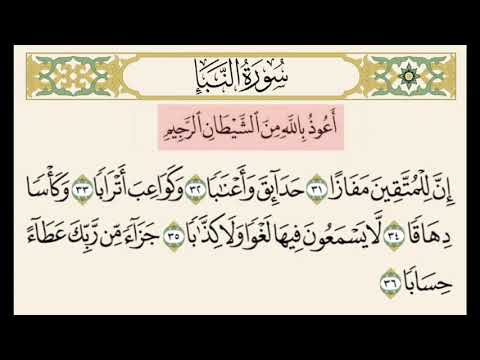 سُورَةُ النَّبَإِ
أَعُوذُ بِاللَّهِ مِنَ ٱلشَّيْطَانِ ٱلرَّجِيمِ
إِنَّ لِلْمُتَّقِينَ مَفَازًا ٣١ حَدَآئِقَ وَأَعْنَٰبًا ٣٢ وَكَوَاعِبَ أَتْرَابًا ٣٣ وَكَأْسًا
دِهَاقًا ٣٤ لَّا يَسْمَعُونَ فِيهَا لَغْوًا وَلَا كِذَّٰبًا ٣٥ جَزَآءً مِّن رَّبِّكَ عَطَآءً
حِسَابًا ٣٦